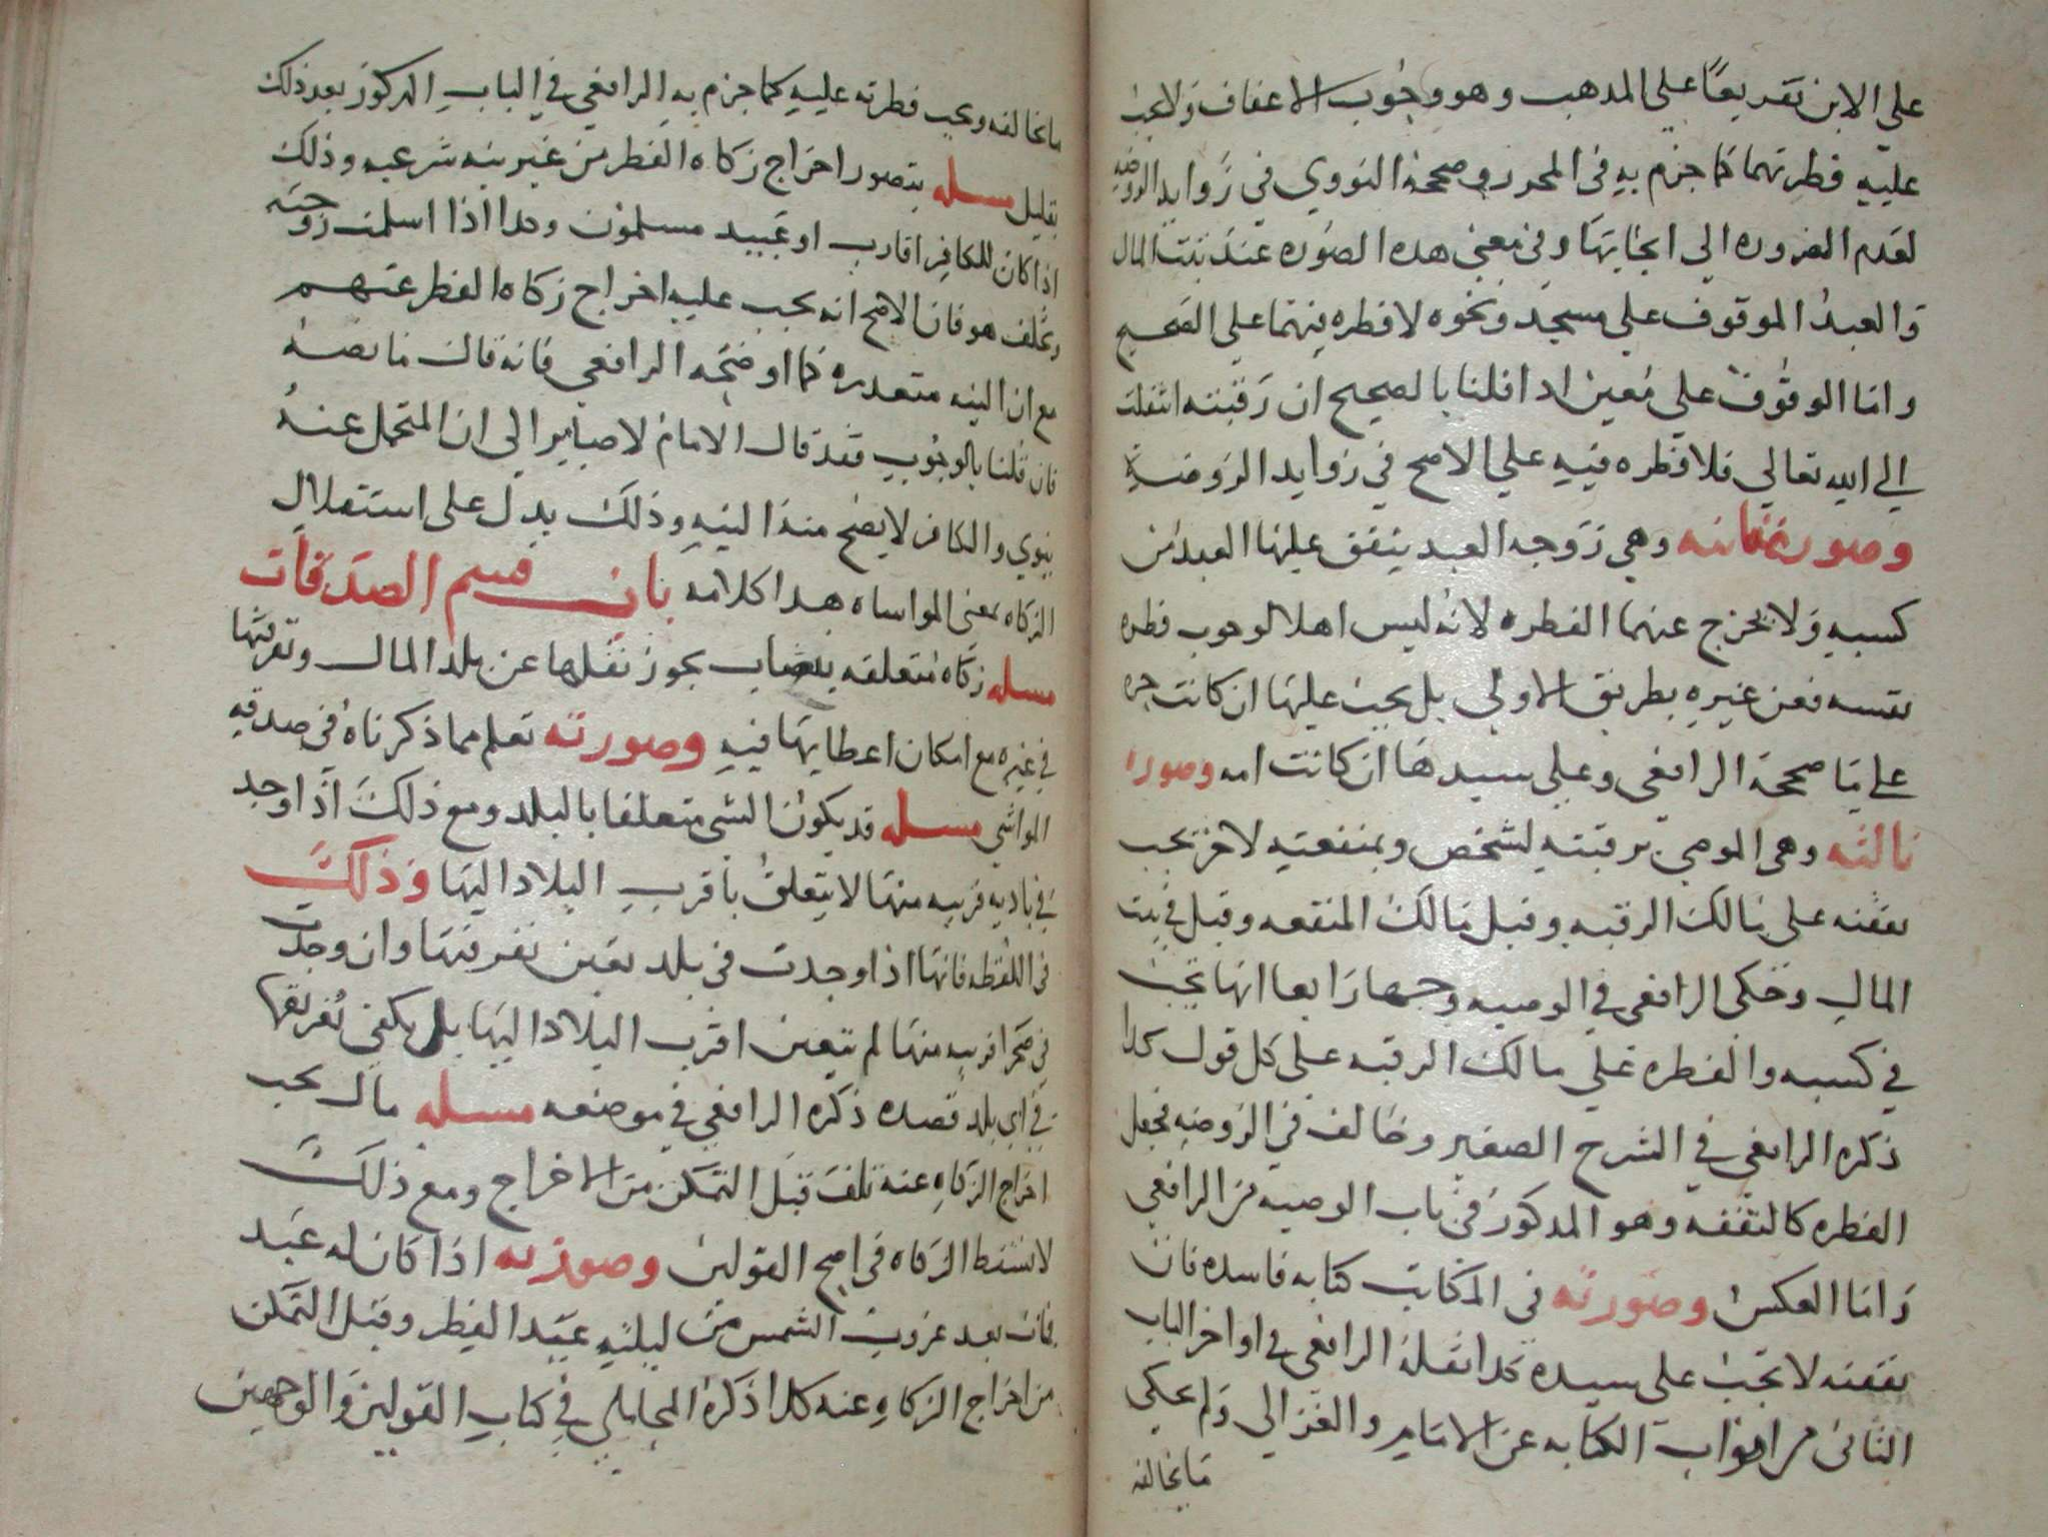 علي الابن تفريعًا علي المدهب وهو وجُوب الاعفاف ولا يجب
عليه فطرتهما كما جزم به في المحرر وصححه النووي في زوايد الروضه
لعدم الضروره الي ايجابها وفي معني هده الصوره عبد بيت المال
والعبد الموقوف علي مسجد ونحوه لا فطره فيهما علي الصحيح
واما الموقوف علي معين ادا قلنا بالصحيح ان رقبته انتقلت
الي الله تعالي فلا فطره فيه علي الاصح في زوايد الروضة
وصورة ثانيه وهي زوجه العبد ينفق عليها العبد من
كسبه ولا يخرج عنهما الفطره لانه ليس اهلا لوجوب فطره
نفسه فعن غيره بطريق الاولي بل يجب عليها ان كانت حره
علي ما صححه الرافعي وعلي سيدها ان كانت امه وصورة
ثالثه وهي الموصي برقبته لشخص وبمنفعته لاخر تجب
نفقته علي مالك الرقبه وقيل مالك المنفعه وقيل في بيت
المال وحكي الرافعي في الوصيه وجها رابعا انها تجب
في كسبه والفطره علي مالك الرقبه علي كل قول كدا
ذكره الرافعي في الشرح الصغير وخالف في الروضه فجعل
الفطره كالنفقه وهو المدكور في باب الوصيه من الرافعي
واما العكس وصورته في المكاتب كتابه فاسده فان
نفقته لا تجب علي سيده كدا نقله الرافعي في اواخر الباب
الثاني من ابواب الكتابه عن الامام والغزالي ولم يحكي
ما يخالفه
ما يخالفه ويجب فطرته عليه كما جزم به الرافعي في الباب المدكور بعد ذلك
بقليل مسله يتصور اخراج زكاه الفطر من غير نيه شرعيه وذلك
اذا كان للكافر اقارب او عبيد مسلمون وكدا اذا اسلمت زوجته
وتخلف هو فان الاصح انه يجب عليه اخراج زكاه الفطر عنهم
مع ان النيه متعدره كما اوضحه الرافعي فانه قال ما نصه
فان قلنا بالوجوب فقد قال الامام لا صاير الي ان المتحمل عنه
ينوي والكافر لا يصح منه النيه وذلك يدل علي استقلال
الزكاه بمعني المواساه هدا كلامه باب قسم الصدقات
مسله زكاه متعلقه بنصاب يجوز نقلها عن بلد المال وتفرقتها
في غيره مع امكان اعطايها فيه وصورته تعلم مما ذكرناه في صدقه
المواشي مسله قد يكون الشي متعلقا بالبلد ومع ذلك اذا وجد
في باديه قريبه منها لا يتعلق باقرب البلاد اليها وذلك
في اللقطه فانها اذا وجدت في بلد تعين تفرقتها وان وجدت
في صحرا قريبه منها لم يتعين اقرب البلاد اليها بل يكفي تفريقها
في اي بلد قصده ذكره الرافعي في موضعه مسله مال يجب
اخراج الزكاه عنه تلف قبل التمكن من الاخراج ومع ذلك
لا تسقط الزكاه في اصح القولين وصورته اذا كان له عبد
فمات بعد غروب الشمس من ليله عيد الفطر وقبل التمكن
من اخراج الزكاه عنه كدا ذكره المحاملي في كتاب القولين والوجهين